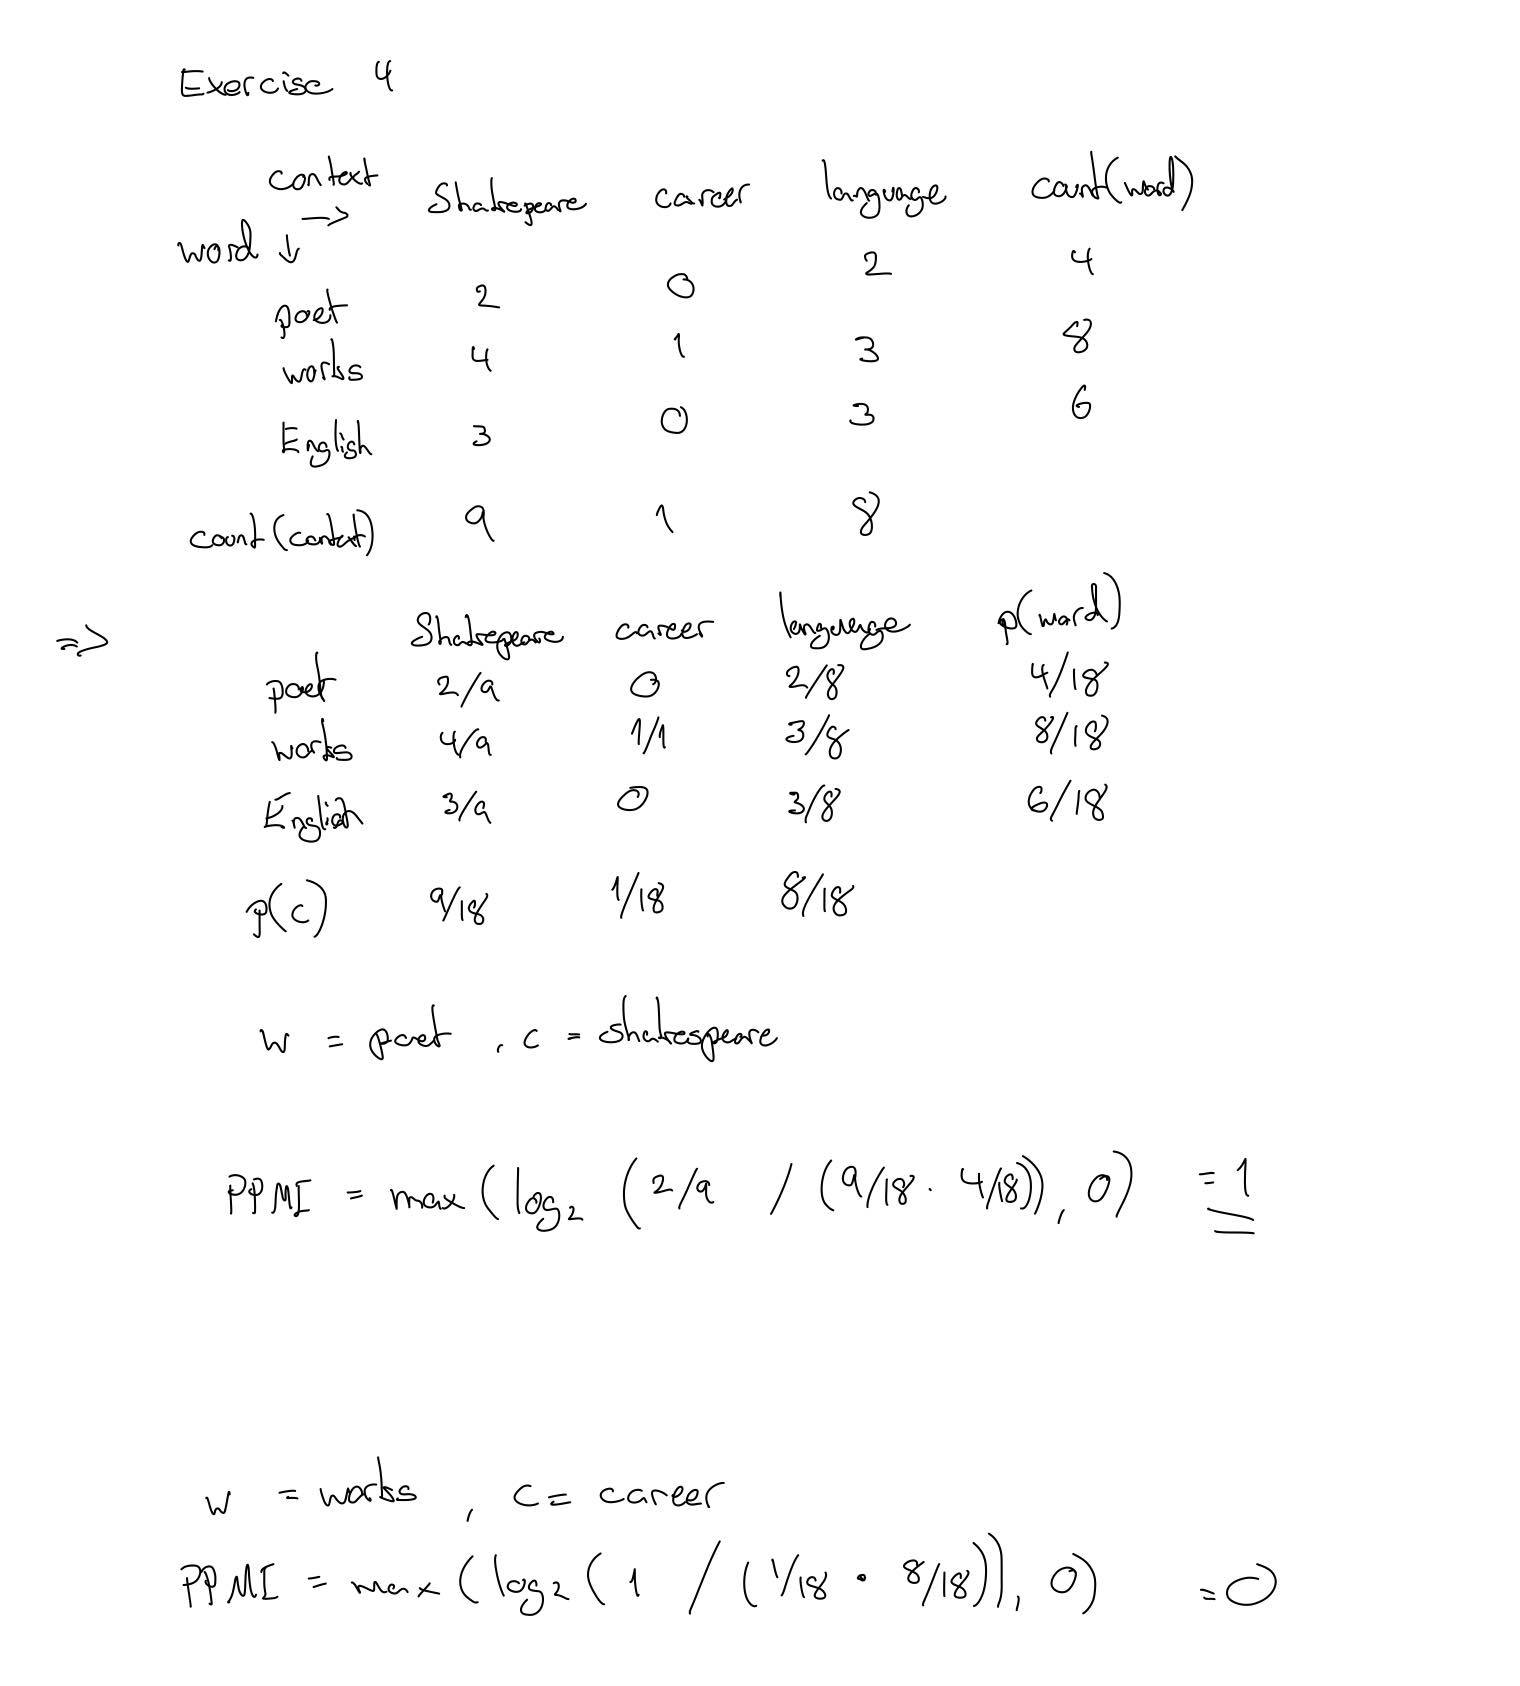 Exercise 4
context → Shakespeare career language count(word)
word ↓
poet 2 0 2 4
works 4 1 3 8
English 3 0 3 6
count(context) 9 1 8
=> Shakespeare career language p(word)
poet 2/9 0 2/8 4/18
works 4/9 1/1 3/8 8/18
English 3/9 0 3/8 6/18
p(c) 9/18 1/18 8/18
w = poet , c = shakespeare
PPMI = max(log₂ (2/9 / (9/18 · 4/18)), 0) = 1
w = works , c = career
PPMI = max(log₂(1 / (1/18 · 8/18)), 0) = 0